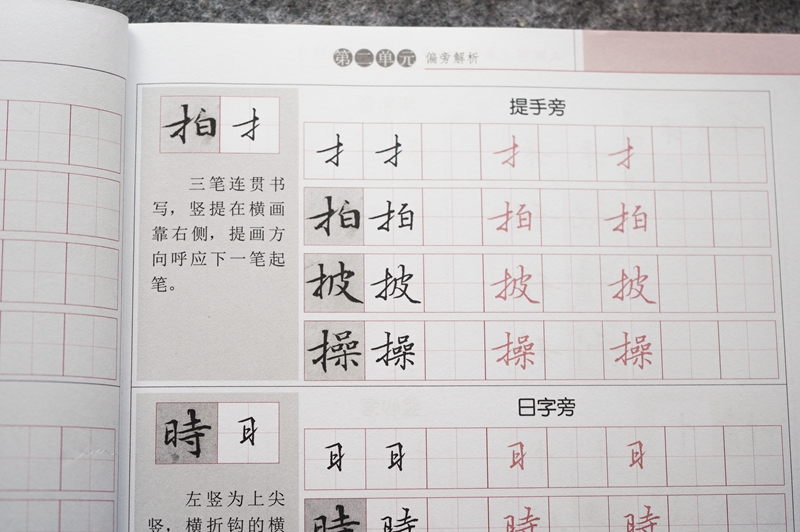 第二单元 偏旁解析
提手旁
拍 扌
三笔连贯书
写，竖提在横画
靠右侧，提画方
向呼应下一笔起
笔。
扌 扌 扌 扌
拍 拍 拍 拍
披 披 披 披
操 操 操 操
日字旁
時 日
左竖为上尖
竖，横折钩的横
日 日 日 日
時 時 時 時